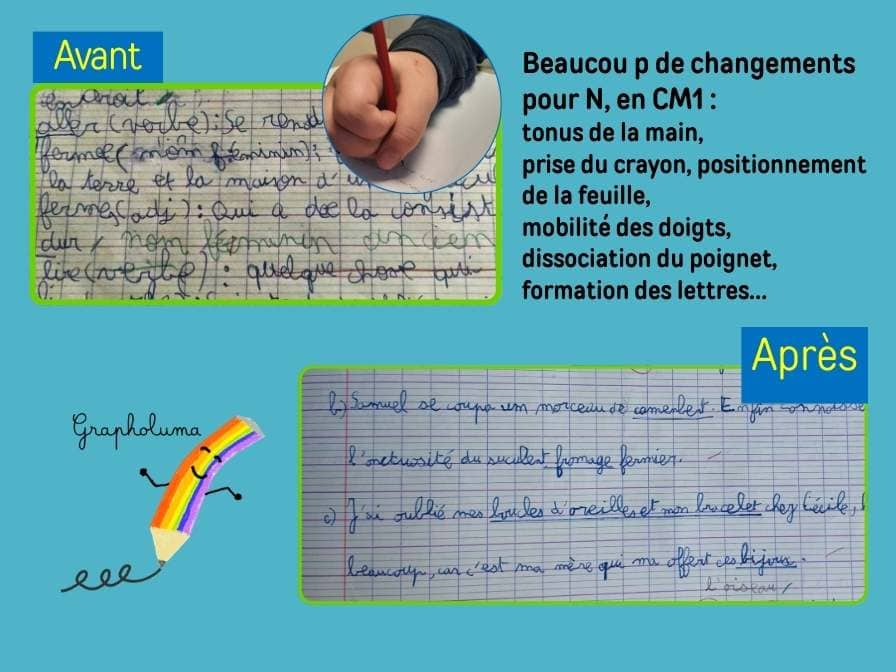 Avant
en droit
aller (verbe) : Se rend
ferme (nom féminin) ;
la terre et la maison d'un
ferme (adj) : Qui a de la consist
dur / nom féminin ancien
lire (verbe) : quelque chose qui
Beaucou p de changements
pour N, en CM1 :
tonus de la main,
prise du crayon, positionnement
de la feuille,
mobilité des doigts,
dissociation du poignet,
formation des lettres...
Après
b) Samuel se coupa um morceau de camenbert. Enfin connaisse
l'onctuosité du suculent fromage fermier.
c) J'ai oublié mes boucles d'oreilles et mon bracelet chez Cécile,
beaucoup, car c'est ma mère qui ma offert ces bijoux.
l'oiseau /
Grapholuma